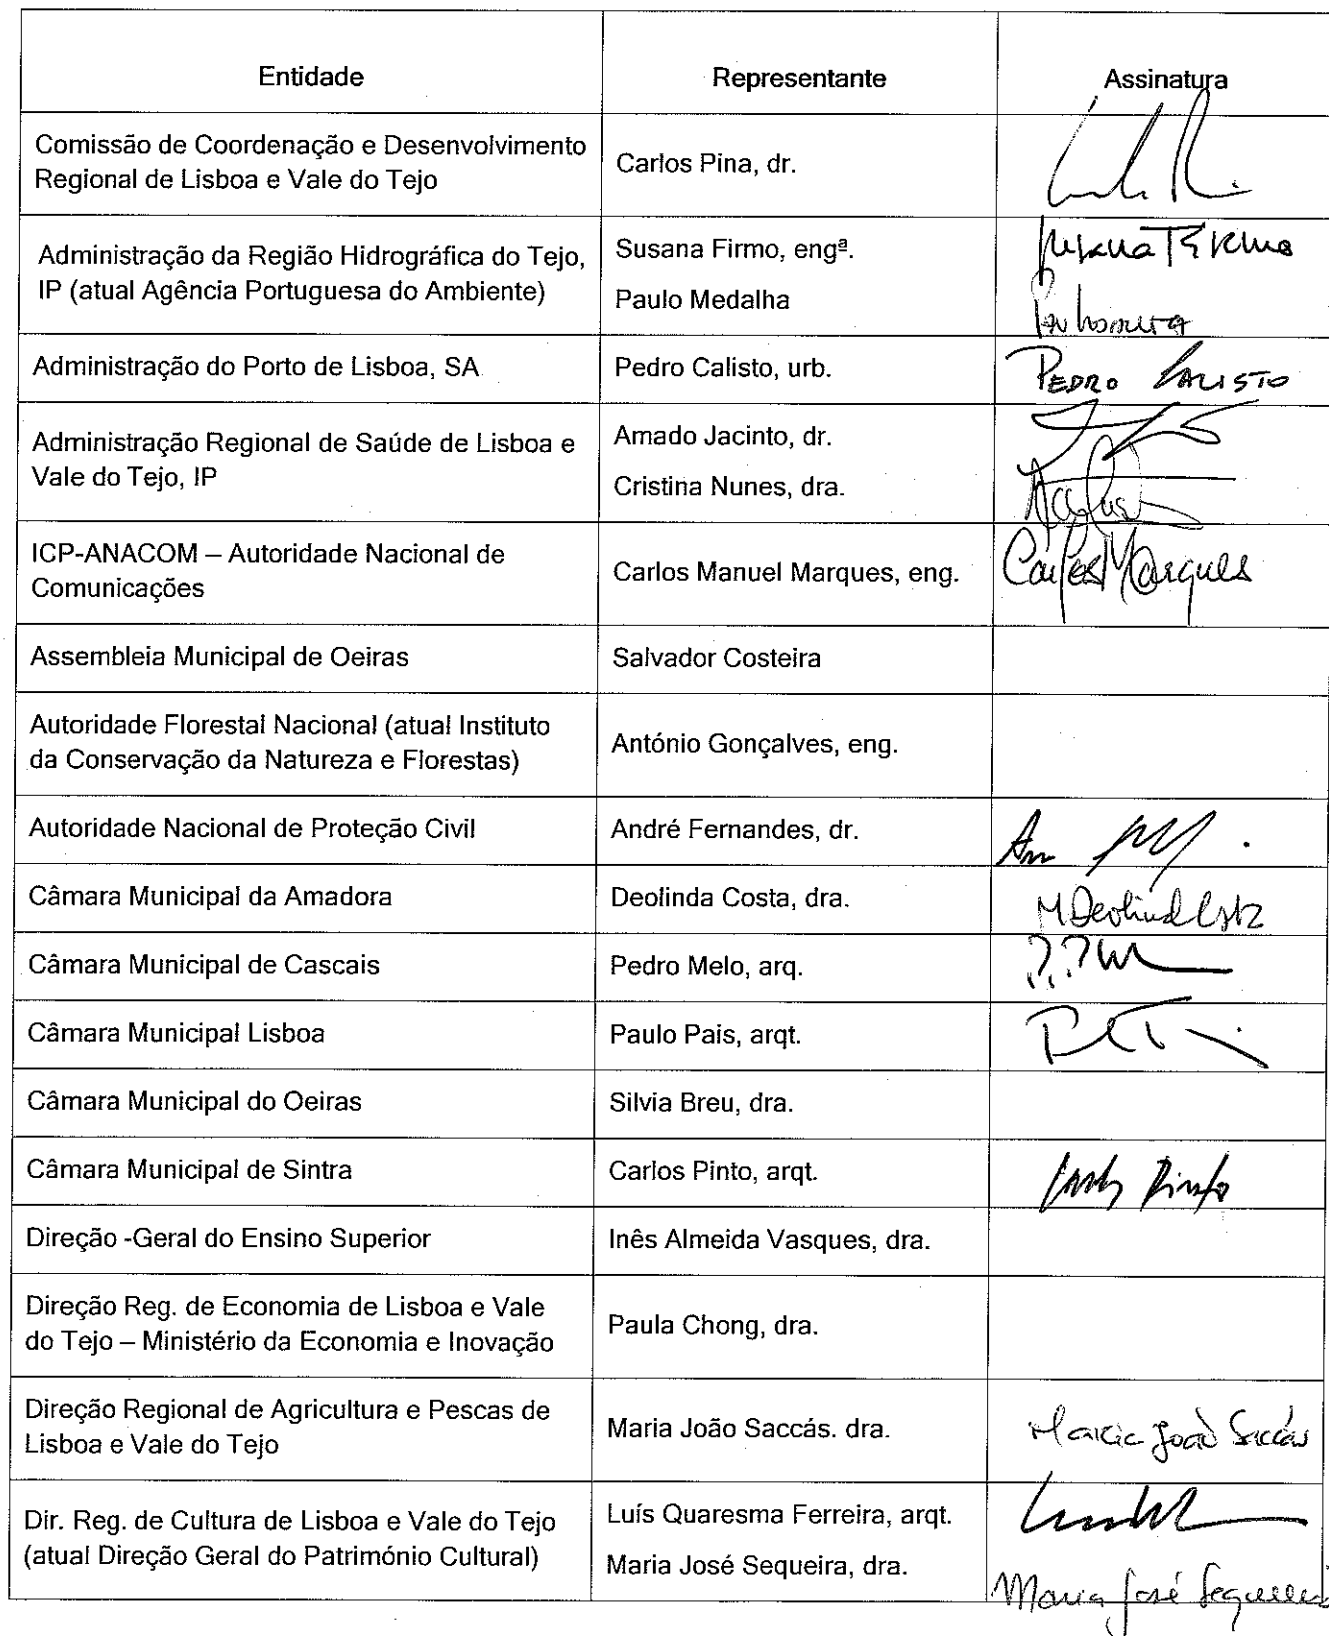 Entidade Representante Assinatura
Comissão de Coordenação e Desenvolvimento
Regional de Lisboa e Vale do Tejo
Carlos Pina, dr.
Administração da Região Hidrográfica do Tejo,
IP (atual Agência Portuguesa do Ambiente)
Susana Firmo, engª.
Paulo Medalha
Administração do Porto de Lisboa, SA
Pedro Calisto, urb.
PEDRO CALISTO
Administração Regional de Saúde de Lisboa e
Vale do Tejo, IP
Amado Jacinto, dr.
Cristina Nunes, dra.
ICP-ANACOM – Autoridade Nacional de
Comunicações
Carlos Manuel Marques, eng.
Carlos Marques
Assembleia Municipal de Oeiras
Salvador Costeira
Autoridade Florestal Nacional (atual Instituto
da Conservação da Natureza e Florestas)
António Gonçalves, eng.
Autoridade Nacional de Proteção Civil
André Fernandes, dr.
Câmara Municipal da Amadora
Deolinda Costa, dra.
Câmara Municipal de Cascais
Pedro Melo, arq.
Câmara Municipal Lisboa
Paulo Pais, arqt.
Câmara Municipal do Oeiras
Silvia Breu, dra.
Câmara Municipal de Sintra
Carlos Pinto, arqt.
Pinto
Direção -Geral do Ensino Superior
Inês Almeida Vasques, dra.
Direção Reg. de Economia de Lisboa e Vale
do Tejo – Ministério da Economia e Inovação
Paula Chong, dra.
Direção Regional de Agricultura e Pescas de
Lisboa e Vale do Tejo
Maria João Saccás. dra.
Maria João Saccás
Dir. Reg. de Cultura de Lisboa e Vale do Tejo
(atual Direção Geral do Património Cultural)
Luís Quaresma Ferreira, arqt.
Maria José Sequeira, dra.
Maria José Sequeira